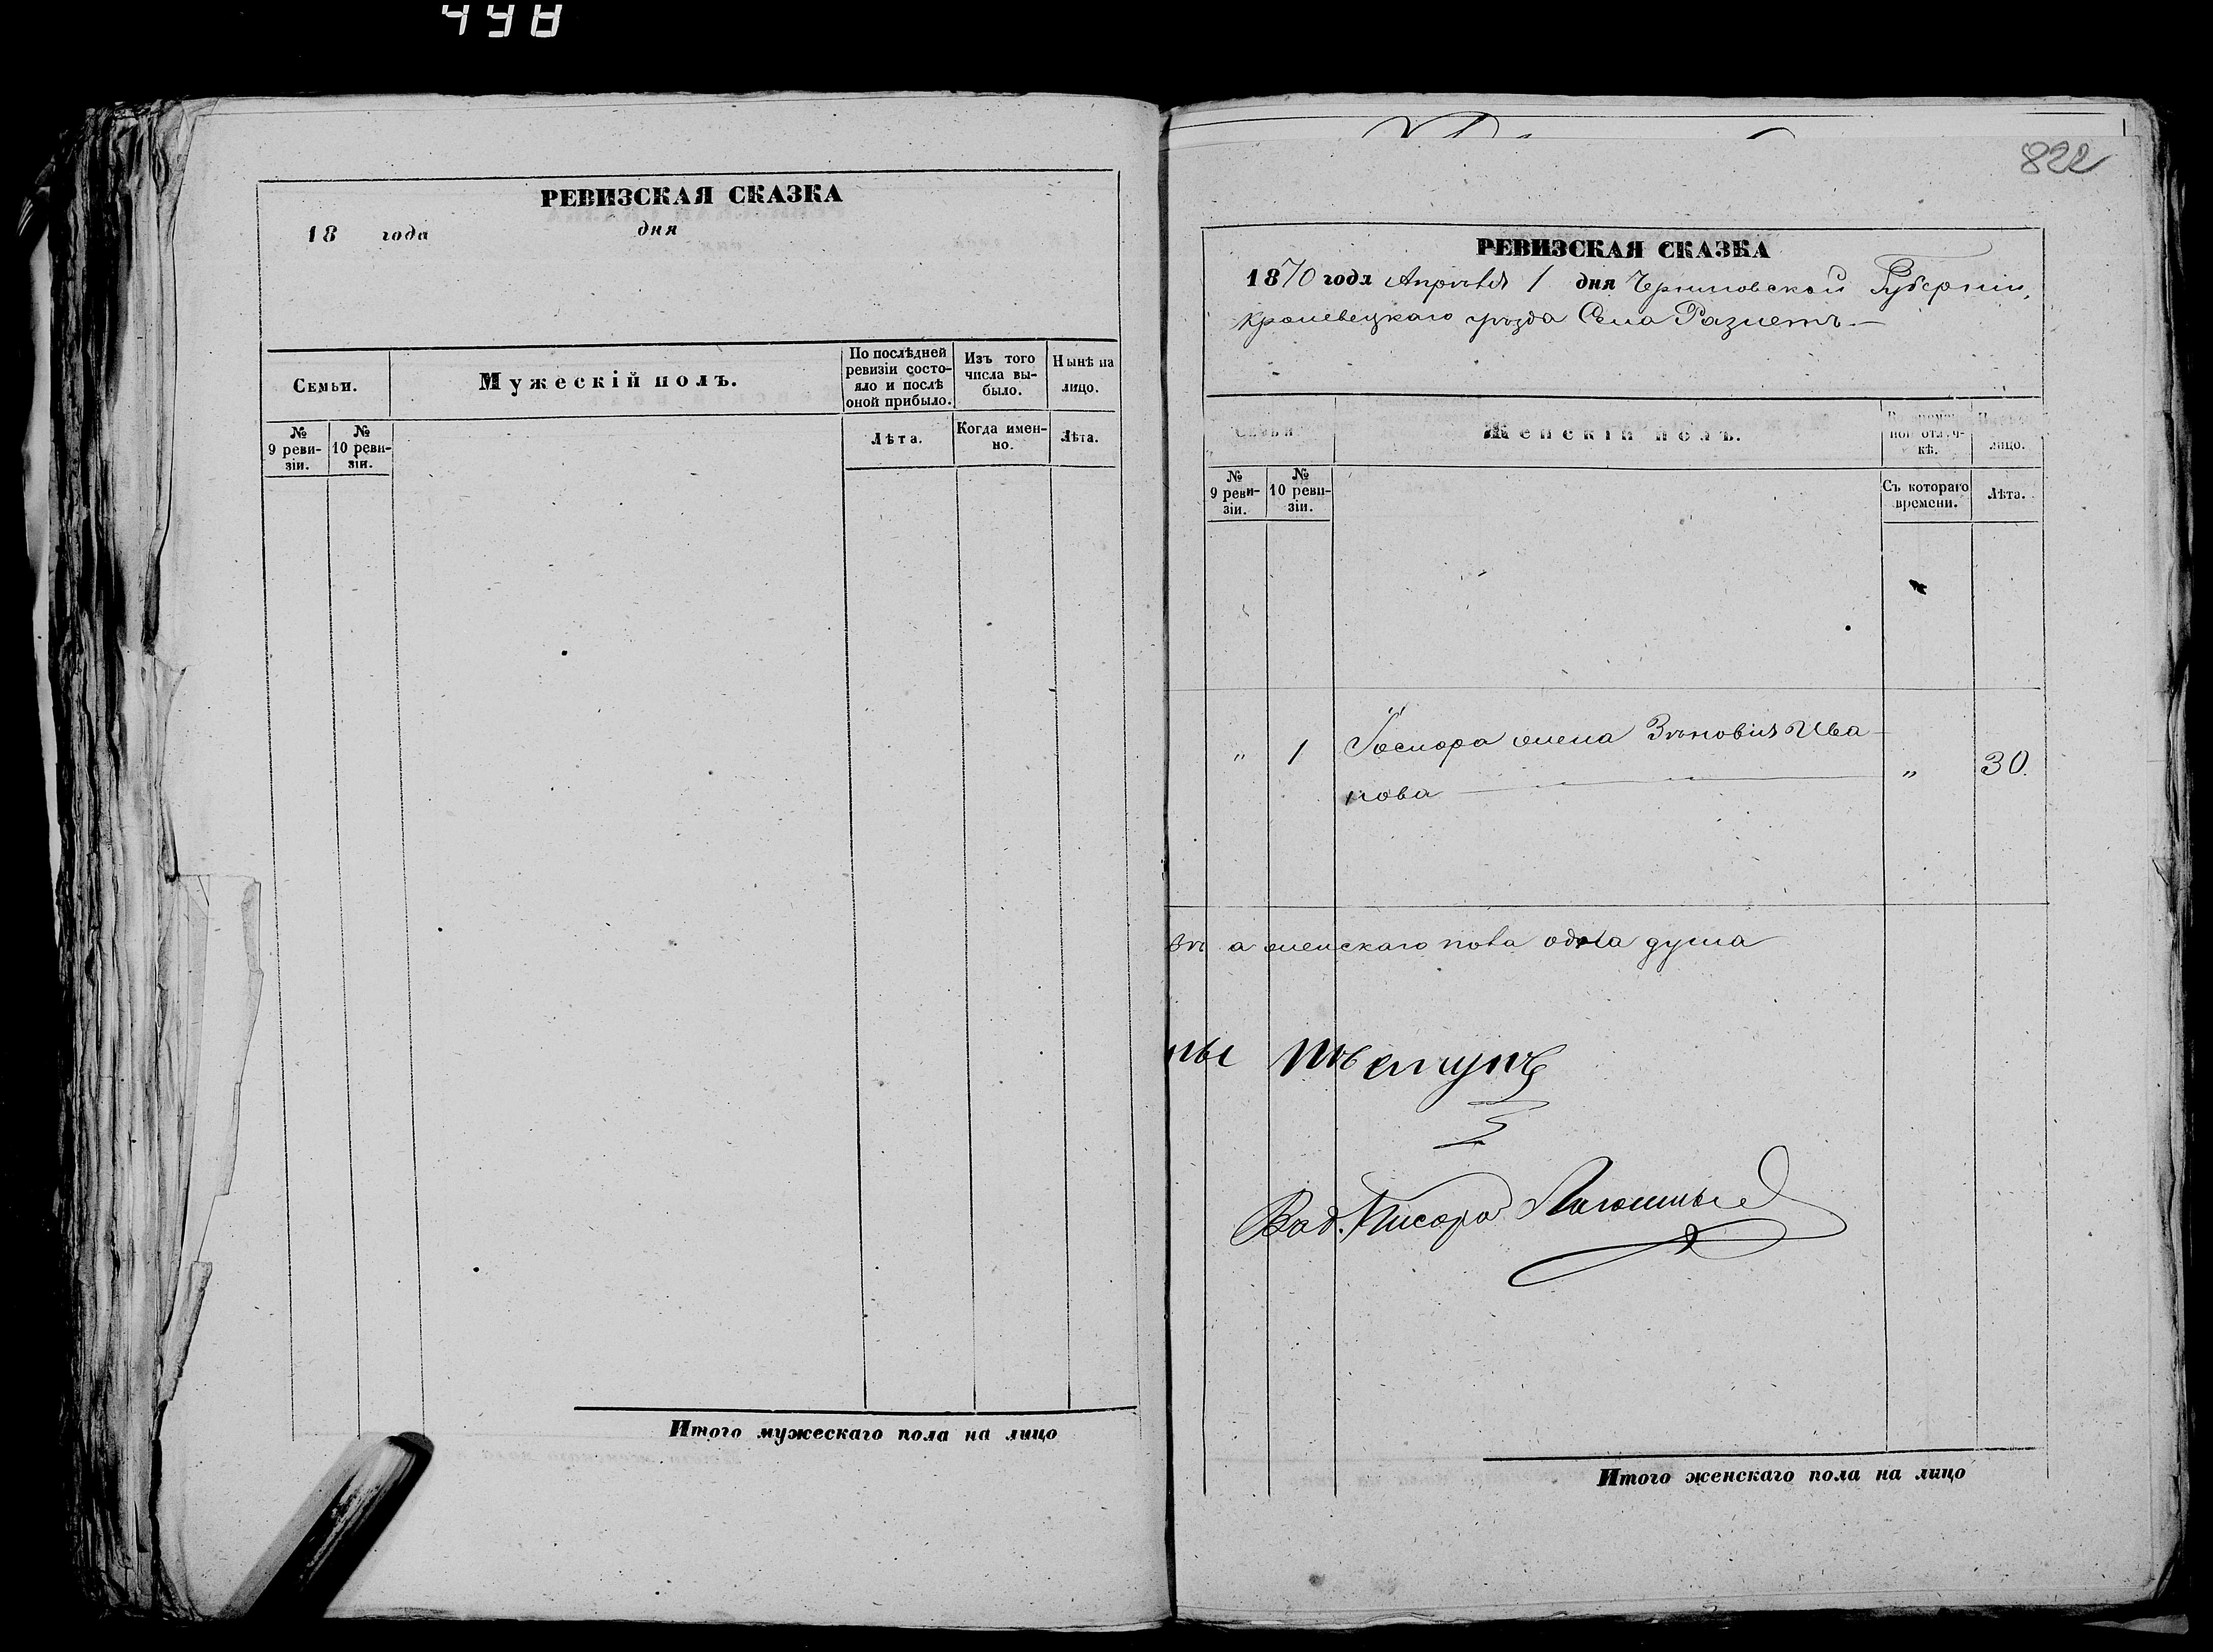 448
РЕВИЗСКАЯ СКАЗКА
18 года дня
Семьи.
Мужескій полъ.
По послѣдней ревизіи состояло и послѣ оной прибыло.
Изъ того числа выбыло.
Нынѣ на лицо.
№ 9 ревизіи.
№ 10 ревизіи.
Лѣта.
Когда именно.
Лѣта.
Итого мужескаго пола на лицо
822
РЕВИЗСКАЯ СКАЗКА
1870 года Апрѣля 1 дня Черниговской Губерніи,
Кролевецкаго уѣзда Села Разлетъ
Семьи.
Женскій полъ.
ной отлучкѣ.
лицо.
№ 9 ревизіи.
№ 10 ревизіи.
Съ котораго времени.
Лѣта.
" 1 жена Зѣновія Ива-
нова " 30.
а женскаго пола одна душа
Писарь
Итого женскаго пола на лицо